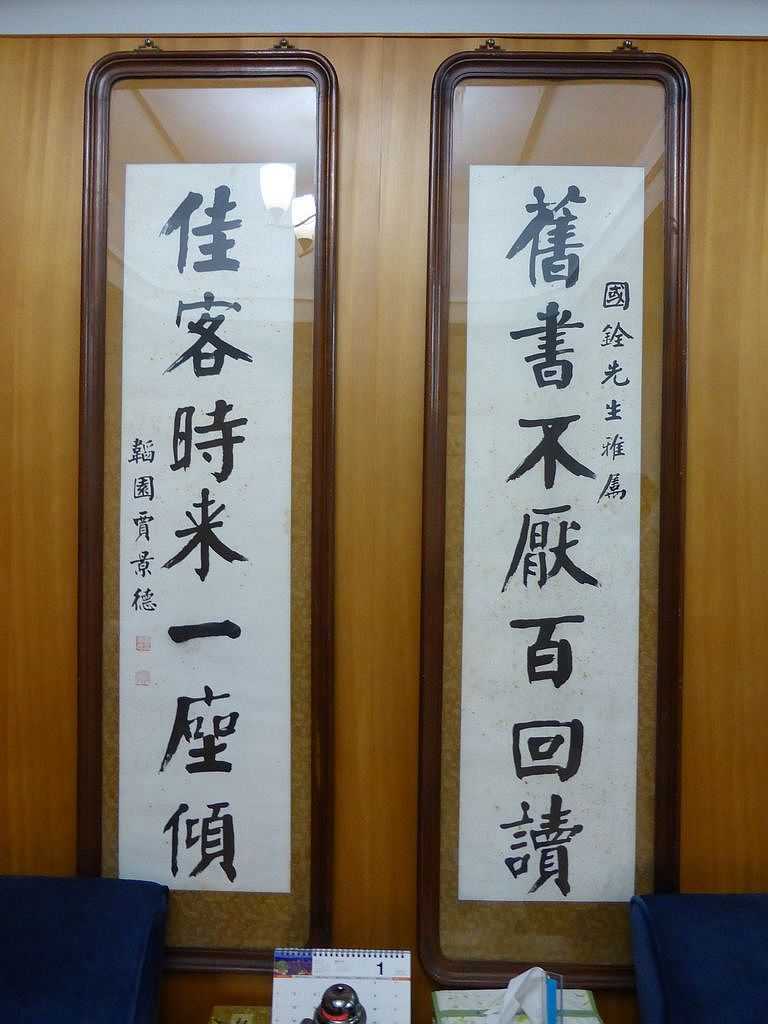 舊書不厭百回讀
國銓先生雅属
佳客時来一座傾
韜園賈景德
1